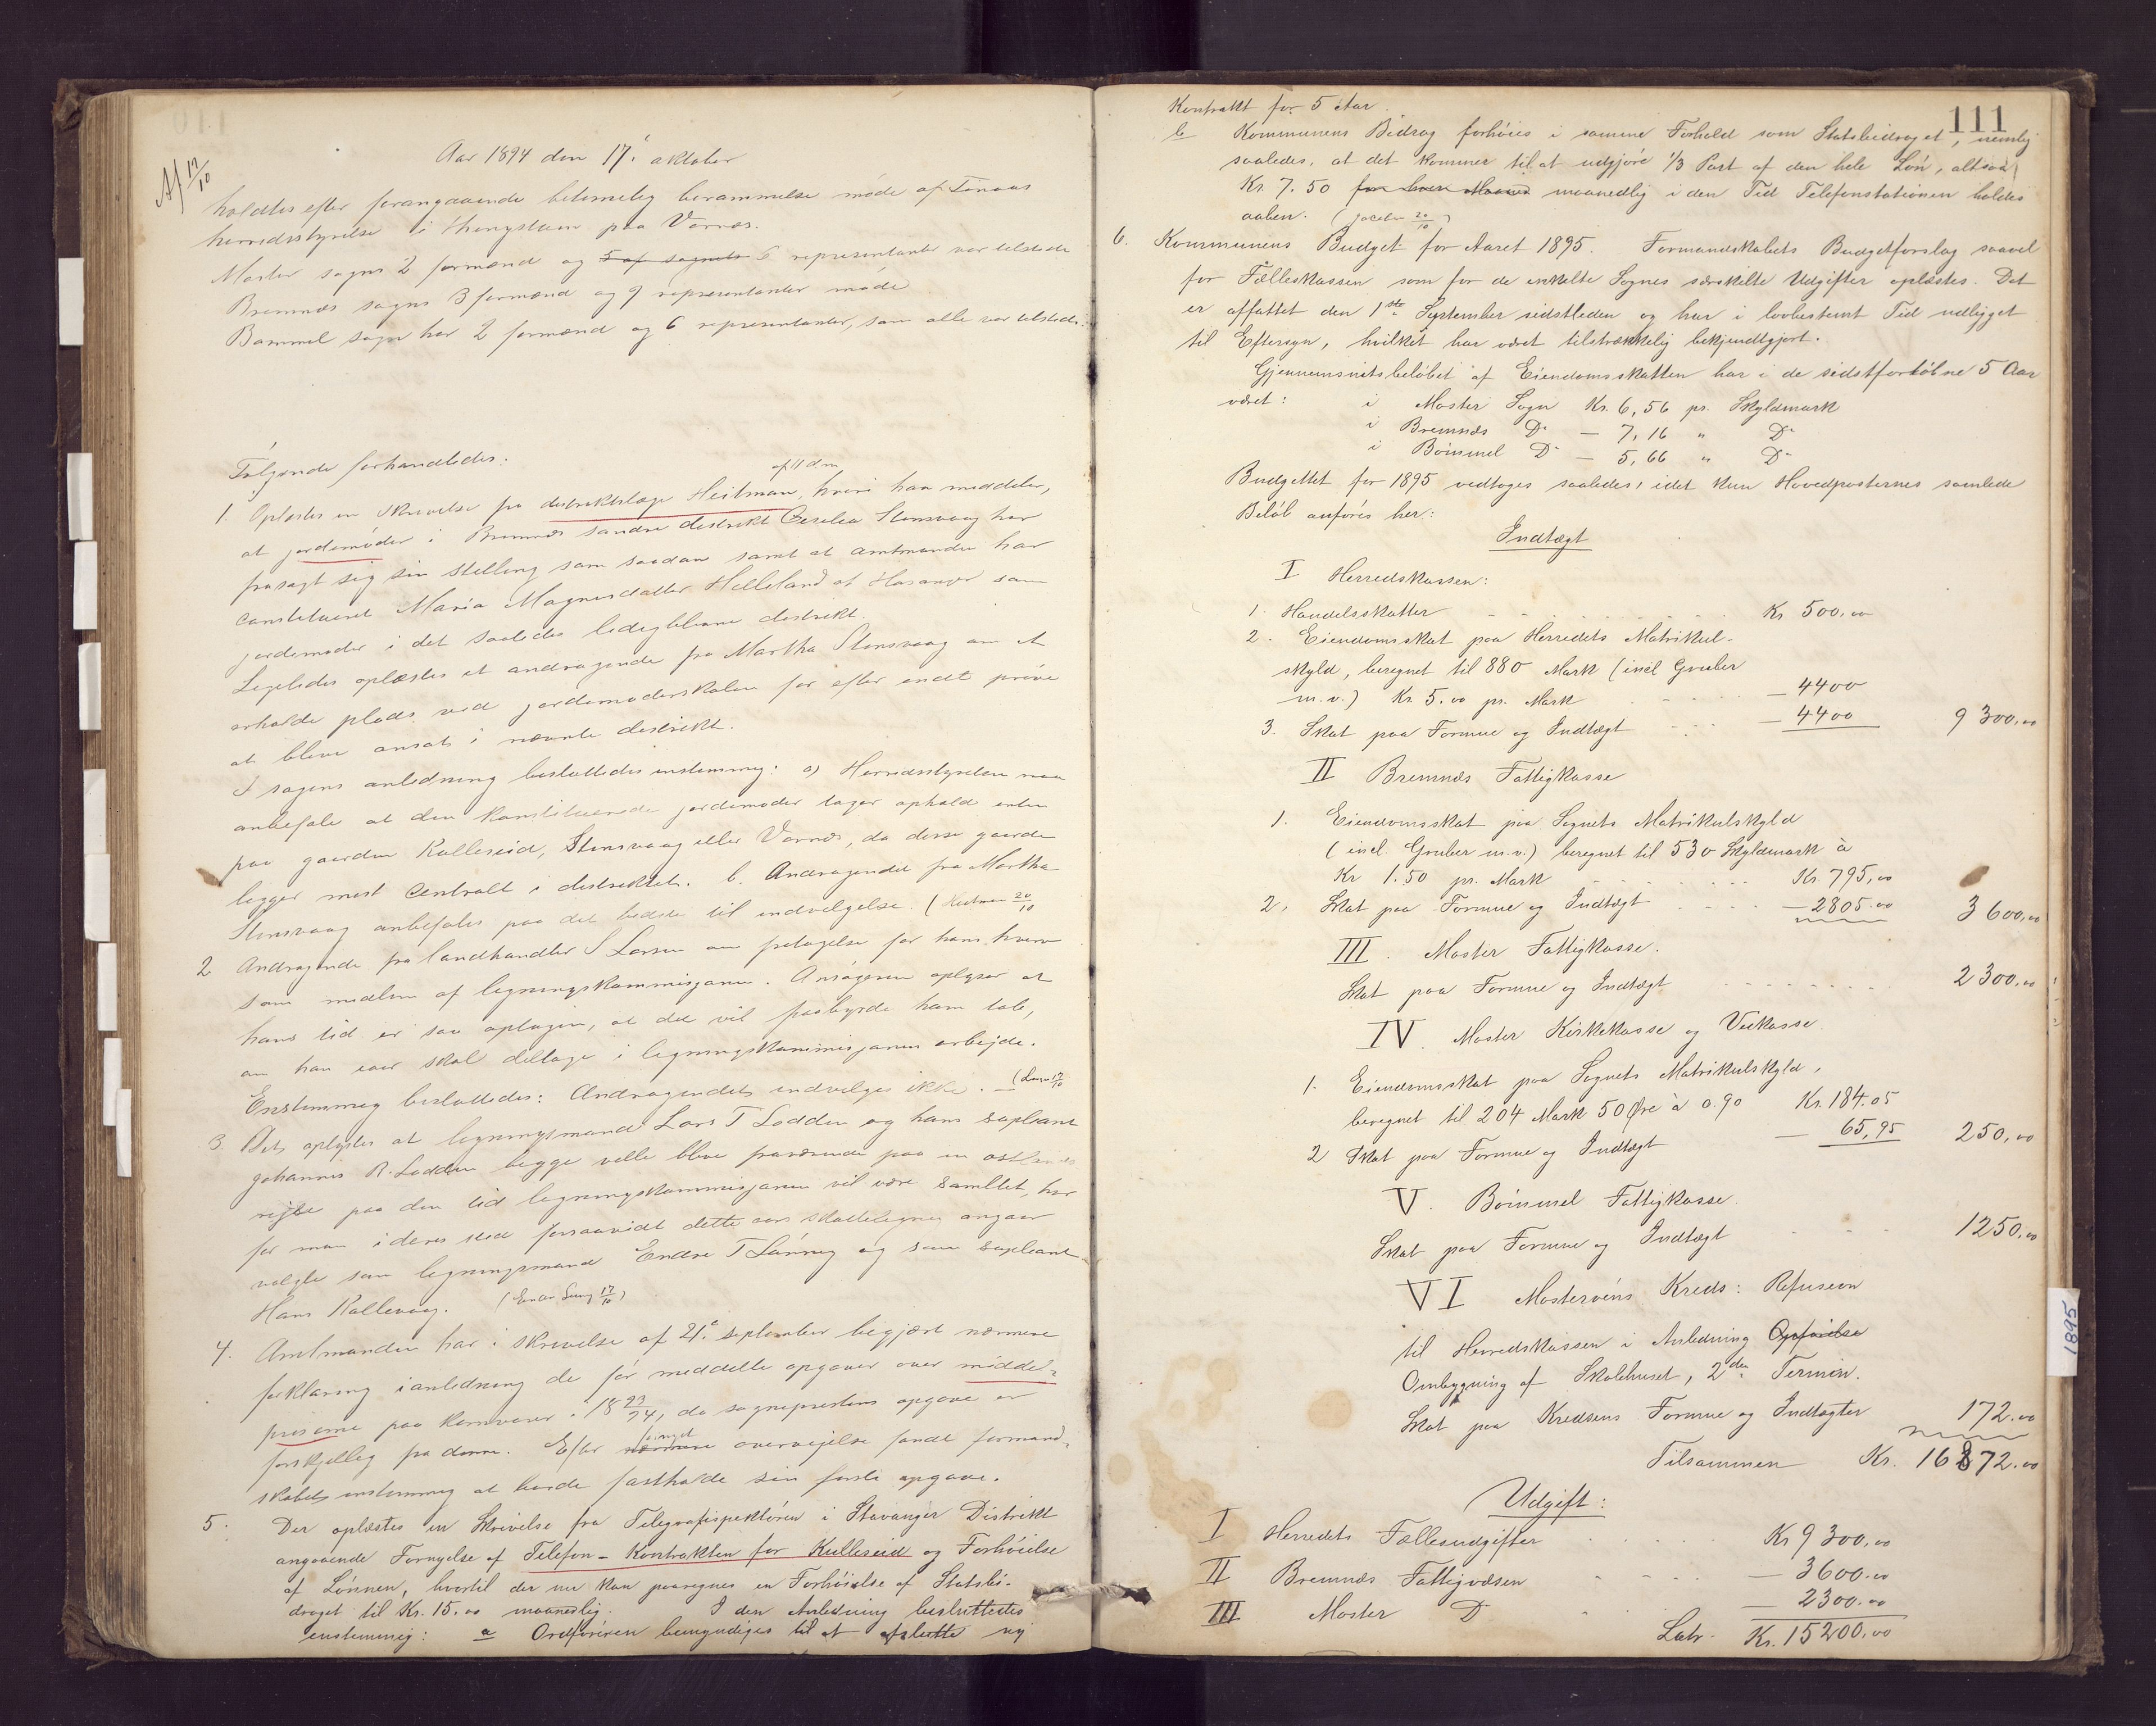 Af 17/10
Aar 1894 den 17de oktober
holdtes efter forangaaende betimelig berammelse møde af Finaas
herredsstyrelse i thingstuen paa Vornæs.
Moster sogns 2 formænd og 5 af sognets 6 representanter var tilstede
Bremnæs sogns 3 formænd og 9 representanter møde
Bømmel sogn har 2 formænd og 6 representanter, som alle var tilstede.
Følgende forhandledes:
af 11 dm
1. Oplæstes en skrivelse fra distriktslæge Heitman, hvori han meddeler,
at jordemoder i Bremnæs søndre distrikt Cecelia Stensvaag har
frasagt sig sin stilling som saadan samt at amtmanden har
constitueret Maria Magnesdatter Helleland af Hosanger som
jordemoder i det saaledes ledigblevne distrikt.
Ligeledes oplæstes et andragende fra Martha Stensvaag om at
erholde plads ved jordemoderskolen for efter endt prøve
at blive ansat i nævnte distrikt.
I sagens anledning besluttedes enstemmig: a) Herredsstyrelsen maa
anbefale at den konstituerede jordemoder tager ophold enten
paa gaarden Kulleseid, Stensvaag eller Vornæs, da disse gaarde
ligger mest centralt i distriktet. b. Andragendet fra Martha
Stensvaag anbefales paa det bedste til indvilgelse. (Heitman 20/10
2 Andragende fra landhandler S Larsen om fritagelse for hans hverv
som medlem af ligningskommisjonen. Ansøgeren oplyser at
hans tid er saa optagen, at det vil paabyrde ham tab,
om han iaar skal deltage i ligningskommisjonens arbejde.
Enstemmig besluttedes: Andragendet indvilges ikke. (Larsen 17/10
3 Det oplystes at ligningsmand Lars T Lodden og hans supleant
Johannis R. Lodden begge ville blive fraværende paa en østlands
rejse paa den tid ligningskommisjonen vil være samlet, hvor
for man i deres sted forsaavidt dette aars skatteligning angaar
valgte som ligningsmand Endre T Lønning og som supleant
Hans Kallevaag. (17/10)
4. Amtmanden har i skrivelse af 21de september begjært nærmere
forklaring i anledning de før meddelte opgaver over middel-
priserne paa kornvarer i 1893/94, da sogneprestens opgave er
forskjellig fra denne. Efter nærmere overvejelse fandt formand-
skabet enstemmig at burde fastholde sin første opgave.
5. Der oplæstes en Skrivelse fra Telegrafispektøren i Stavanger Distrikt
angaaende Fornyelse af Telefon-Kontrakten for Kulleseid og Forhøielse
af Lønnen, hvortil der nu kan paaregnes en Forhøielse af Statsbi-
draget til Kr. 15.00 maanedlig. I den Anledning besluttedes
enstemmig: a Ordføreren bemyndiges til at afslutte ny
111
Kontrakt for 5 Aar.
b Kommunens Bidrag forhøies i samme Forhold som Statsbidraget, nemlig
saaledes, at det kommer til at udgjøre 1/3 Part af den hele Løn, altsaa
Kr. 7.50 for hver Maaned maanedlig i den Tid Telefonstationen holdes
aaben. (20/10)
6. Kommunens Budget for Aaret 1895. Formandskabets Budgetforslag saavel
for Fælleskassen som for de enkelte Sognes særskilte Udgifter oplæstes. Det
er affattet den 1ste September sidstleden og har i lovbestemt Tid udligget
til Eftersyn, hvilket har været tilstrækkelig bekjendtgjort.
Gjennemsnitsbeløbet af Eiendomsskatten har i de sidstforløbne 5 Aar
været: i Moster Sogn Kr. 6,56 pr. Skyldmark
i Bremnæs Do — 7,16 " Do
i Bømmel Do — 5,66 " Do
Budgettet for 1895 vedtoges saaledes, idet kun Hovedposternes samlede
Beløb anføres her:
Indtægt
I Herredskassen:
1. Handelsskatter Kr 500.00
2. Eiendomsskat paa Herredets Matrikul-
skyld, beregnet til 880 Mark (incl Gruber
m.v.) Kr 5.00 pr. Mark — 4400
3. Skat paa Formue og Indtægt — 4400 9 300,00
II Bremnæs Fattigkasse
1. Eiendomsskat paa Sognets Matrikulskyld
(incl. Gruber m.v.) beregnet til 530 Skyldmark à
Kr 1.50 pr. Mark Kr. 795,00
2. Skat paa Formue og Indtægt — 2805.00 3 600,00
III. Moster Fattigkasse.
Skat paa Formue og Indtægt 2 300,00
IV. Moster Kirkekasse og Veikasse.
1. Eiendomsskat paa Sognets Matrikulskyld,
beregnet til 204 Mark 50 Øre à 0.90 Kr. 184.05
2 Skat paa Formue og Indtægt — 65,95 250,00
V. Bømmel Fattigkasse.
Skat paa Formue og Indtægt 1250,00
VI Mosterøens Kreds: Refusion
til Herredskassen i Anledning Opførelse
Ombygning af Skolehuset, 2den Termin.
Skat paa Kredsens Formue og Indtægter 172.00
Tilsammen Kr. 16872.00
Udgift:
I Herredets Fællesudgifter Kr 9 300,00
II Bremnæs Fattigvæsen — 3600.00
III Moster Do — 2300.00
Latr. Kr. 15200,00
1895